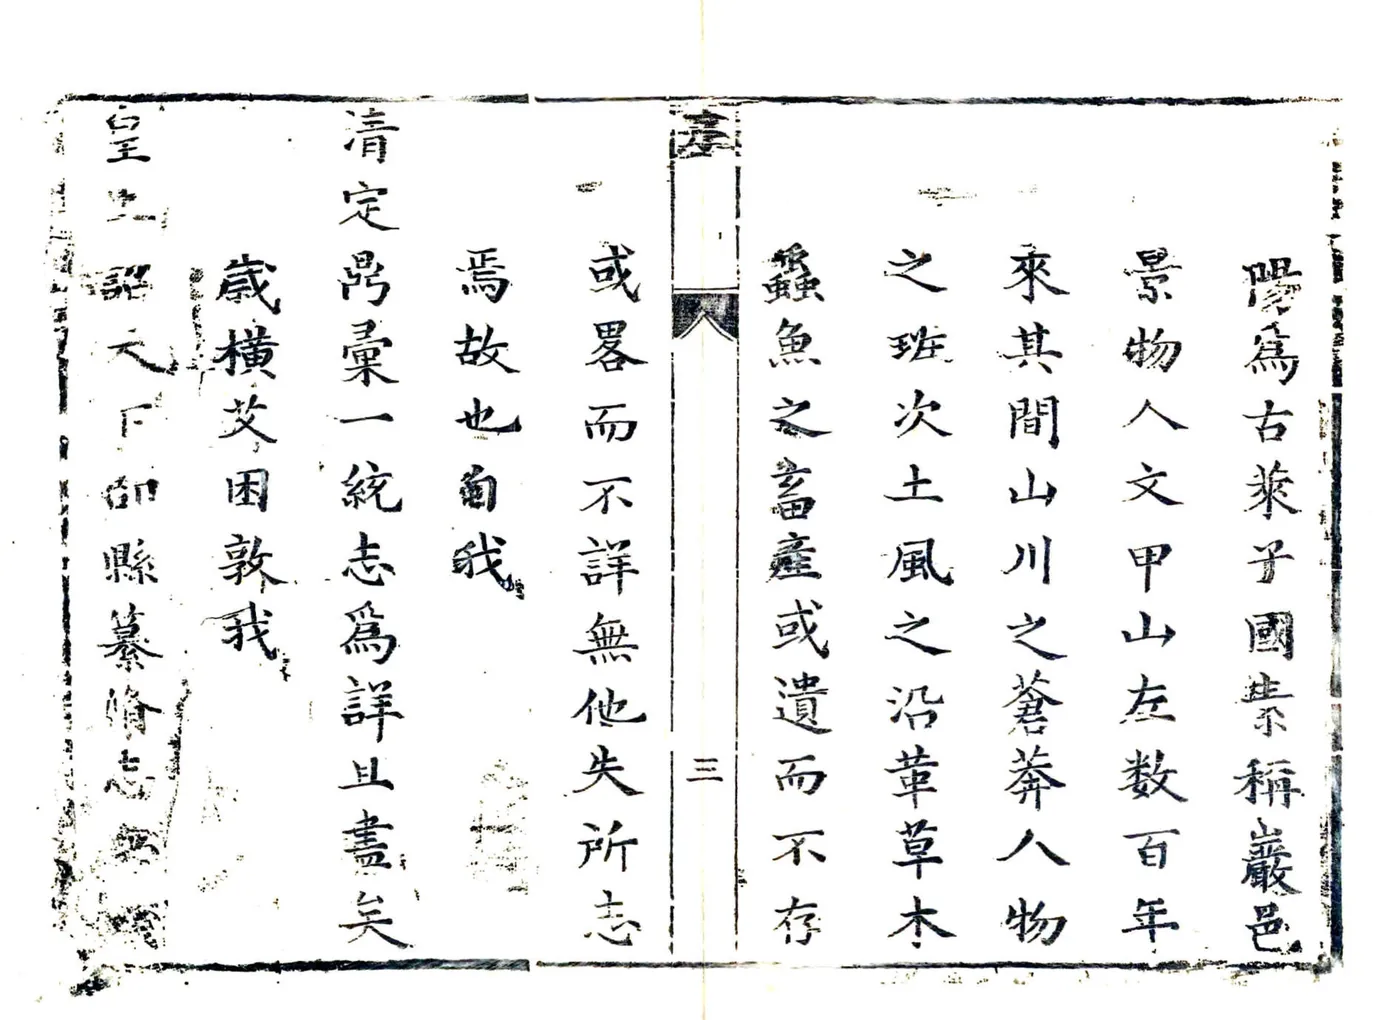 陽爲古萊子國素稱巖邑
景物人文甲山左数百年
來其間山川之蒼莽人物
之班次土風之沿革草木
蟲魚之畜產或遺而不存
序
三
或畧而不詳無他失所志
焉故也自我
清定鼎彙一統志爲詳且盡矣
歲橫艾困敦我
皇上詔天下郡縣纂脩志